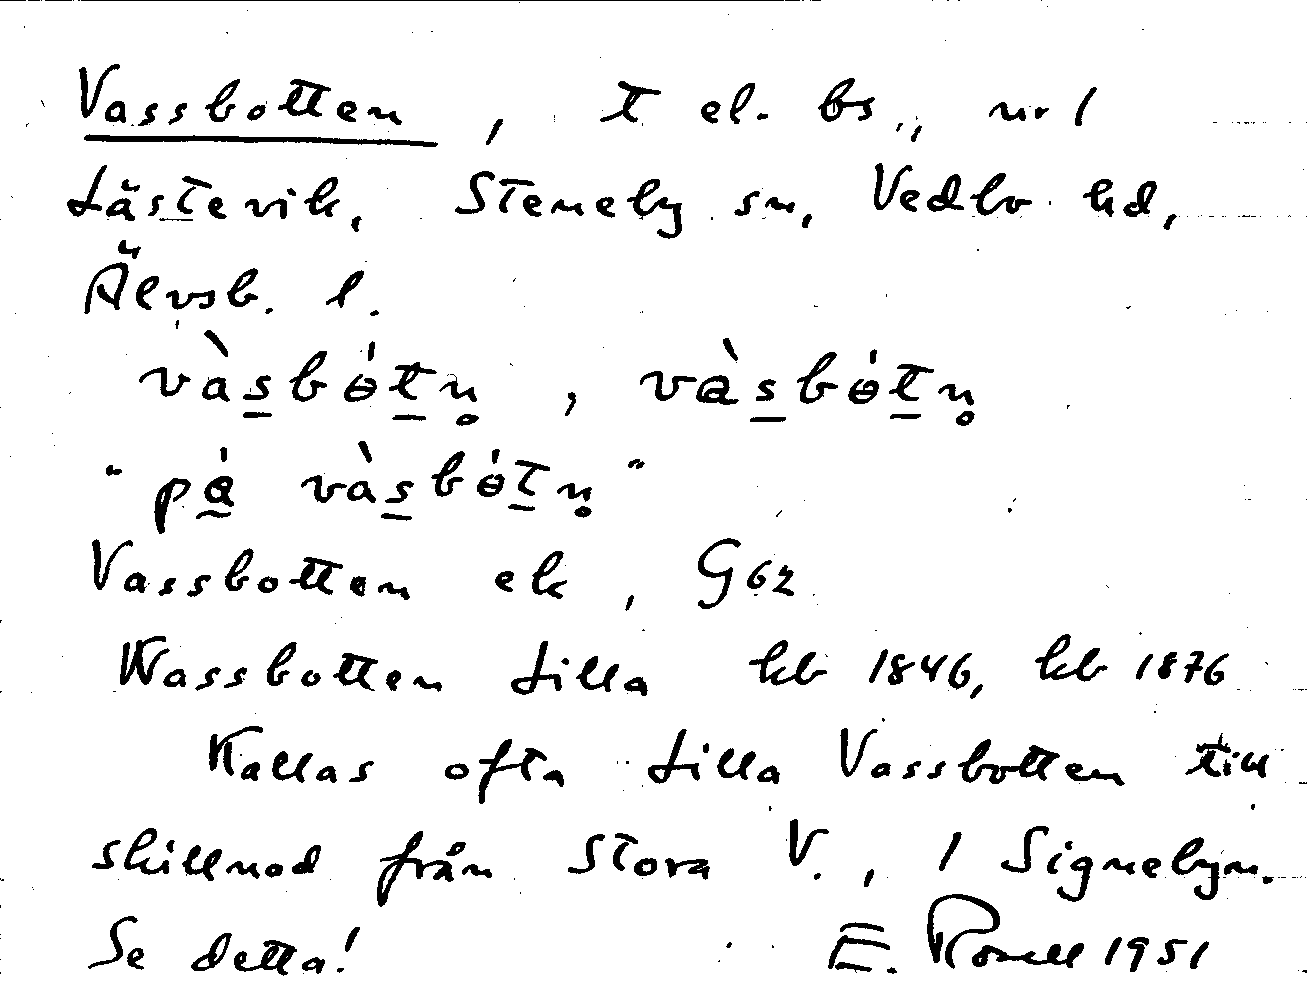 Vassbotten, t el. bs., nr 1
Lästevik, Steneby sn, Vedbo hd,
Älvsb. l.
vàsbɵ́tn̥, vàsbɵ́tn̥
"på vàsbɵ́tn̥"
Vassbotten ek, G62
Wassbotten Lilla kb 1846, kb 1876
Kallas ofta Lilla Vassbotten till
skillnad från Stora V., 1 Signebyn.
Se detta! E. 1951